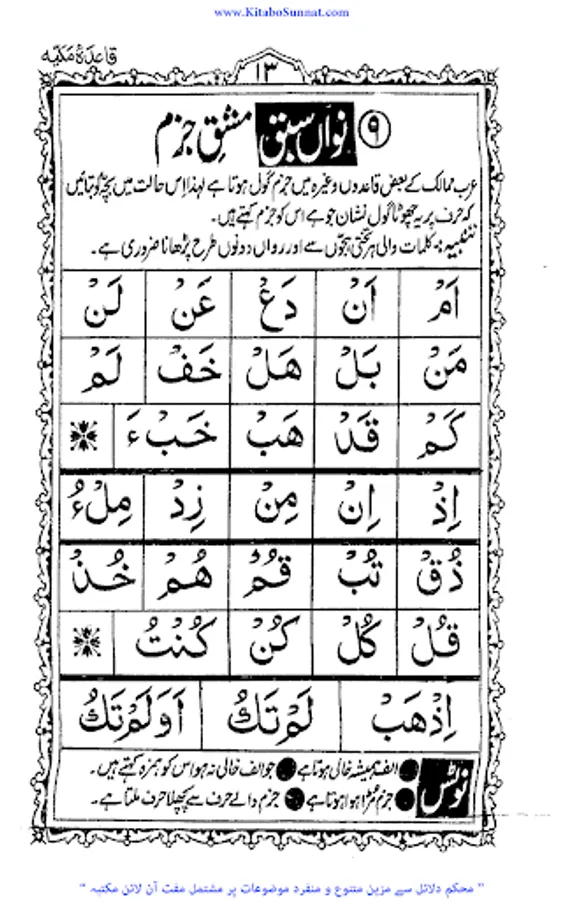 www.KitaboSunnat.com
قاعدہ مکیہ
۱۳
۹ نواں سبق مشق جزم
عرب ممالک کے بعض قاعدوں وغیرہ میں جزم گول ہوتا ہے لہٰذا اس حالت میں بچہ کو بتائیں
کہ حرف پر یہ چھوٹا گول نشان جو ہے اس کو جزم کہتے ہیں۔
تنبیہ:۔ کلمات والی ہر تختی ہجوں سے اور رواں دونوں طرح پڑھانا ضروری ہے۔
اَمْ اَنْ دَعْ عَنْ لَنْ
مَنْ بَلْ هَلْ خَفْ لَمْ
كَمْ قَدْ هَبْ خَبْءَ
اِذْ اِنْ مِنْ زِدْ مِلْءُ
ذُقْ تُبْ قُمْ هُمْ خُذْ
قُلْ كُلْ كُنْ كُنْتُ
اِذْهَبْ لَمْ تَكُ اَوَلَمْ تَكُ
نوٹس الف ہمیشہ خالی ہوتا ہے جو الف خالی نہ ہو اس کو ہمزہ کہتے ہیں۔
جزم مُڑا ہوا ہوتا ہے جزم والے حرف سے پچھلا حرف ملتا ہے۔
" محکم دلائل سے مزین متنوع و منفرد موضوعات پر مشتمل مفت آن لائن مکتبہ "